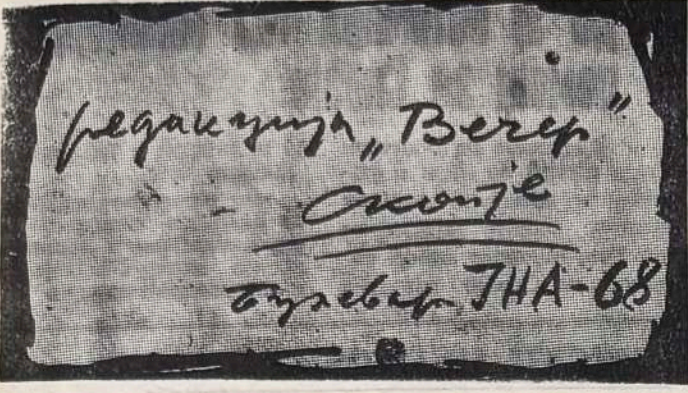 редакција „Вечер"
Скопје
булевар ЈНА-68